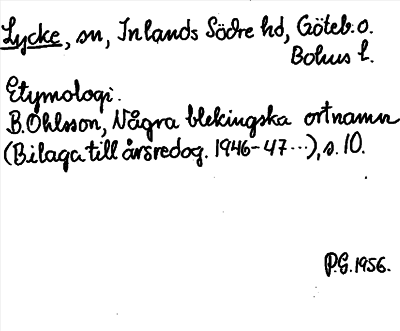 Lycke, sn, Inlands Södre hd, Göteb. o.
Bohus l.
Etymologi.
B. Ohlsson, Några blekingska ortnamn
(Bilaga till årsredog. 1946-47 ...), s. 10.
P.G. 1956.